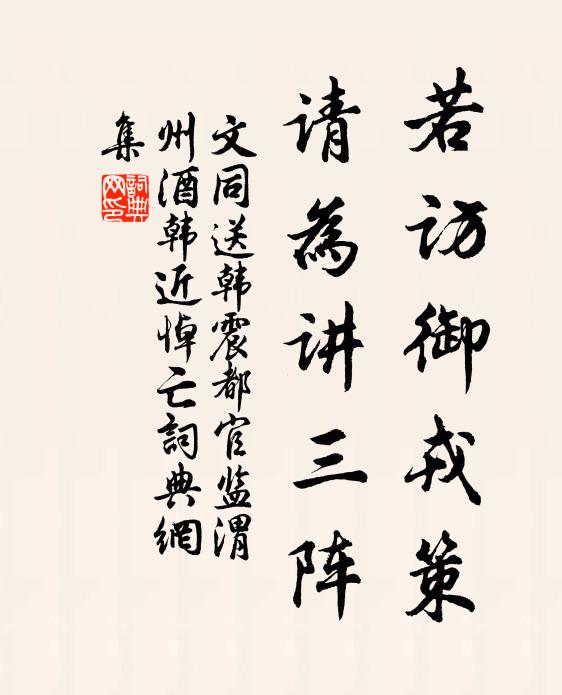 若访御戎策
请為讲三阵
文同送韩震都官监渭
州酒韩近悼亡詞典網
集
詞典網印